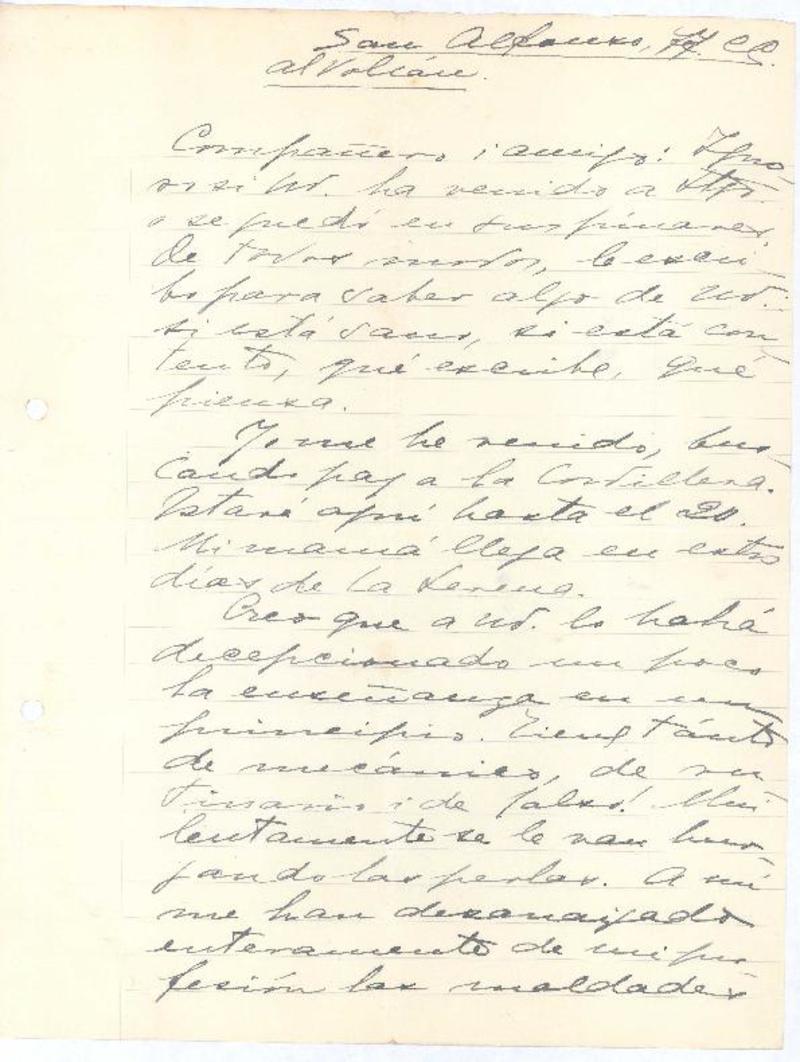 San Alfonso, FF. CC.
al Volcán.
Compañero i amigo: Igno
ro si Ud. ha venido a Stgo.
o se quedó en sus pinares.
De todos modos, le escri-
bo para saber algo de Ud.:
si está sano, si está con
tento, qué escribe, qué
piensa.
Yo me he venido, bus-
cando paz a la Cordillera.
Estaré aquí hasta el 20.
Mi mamá llega en estos
días de La Serena.
Creo que a Ud. lo habrá
decepcionado un poco
la enseñanza en un
principio. Tiene tánto
de mecánico, de ru
tinario i de falso! Mui
lentamente se le van hur
gando las perlas. A mí
me han desarraigado
enteramente de mi pro
fesión las maldades